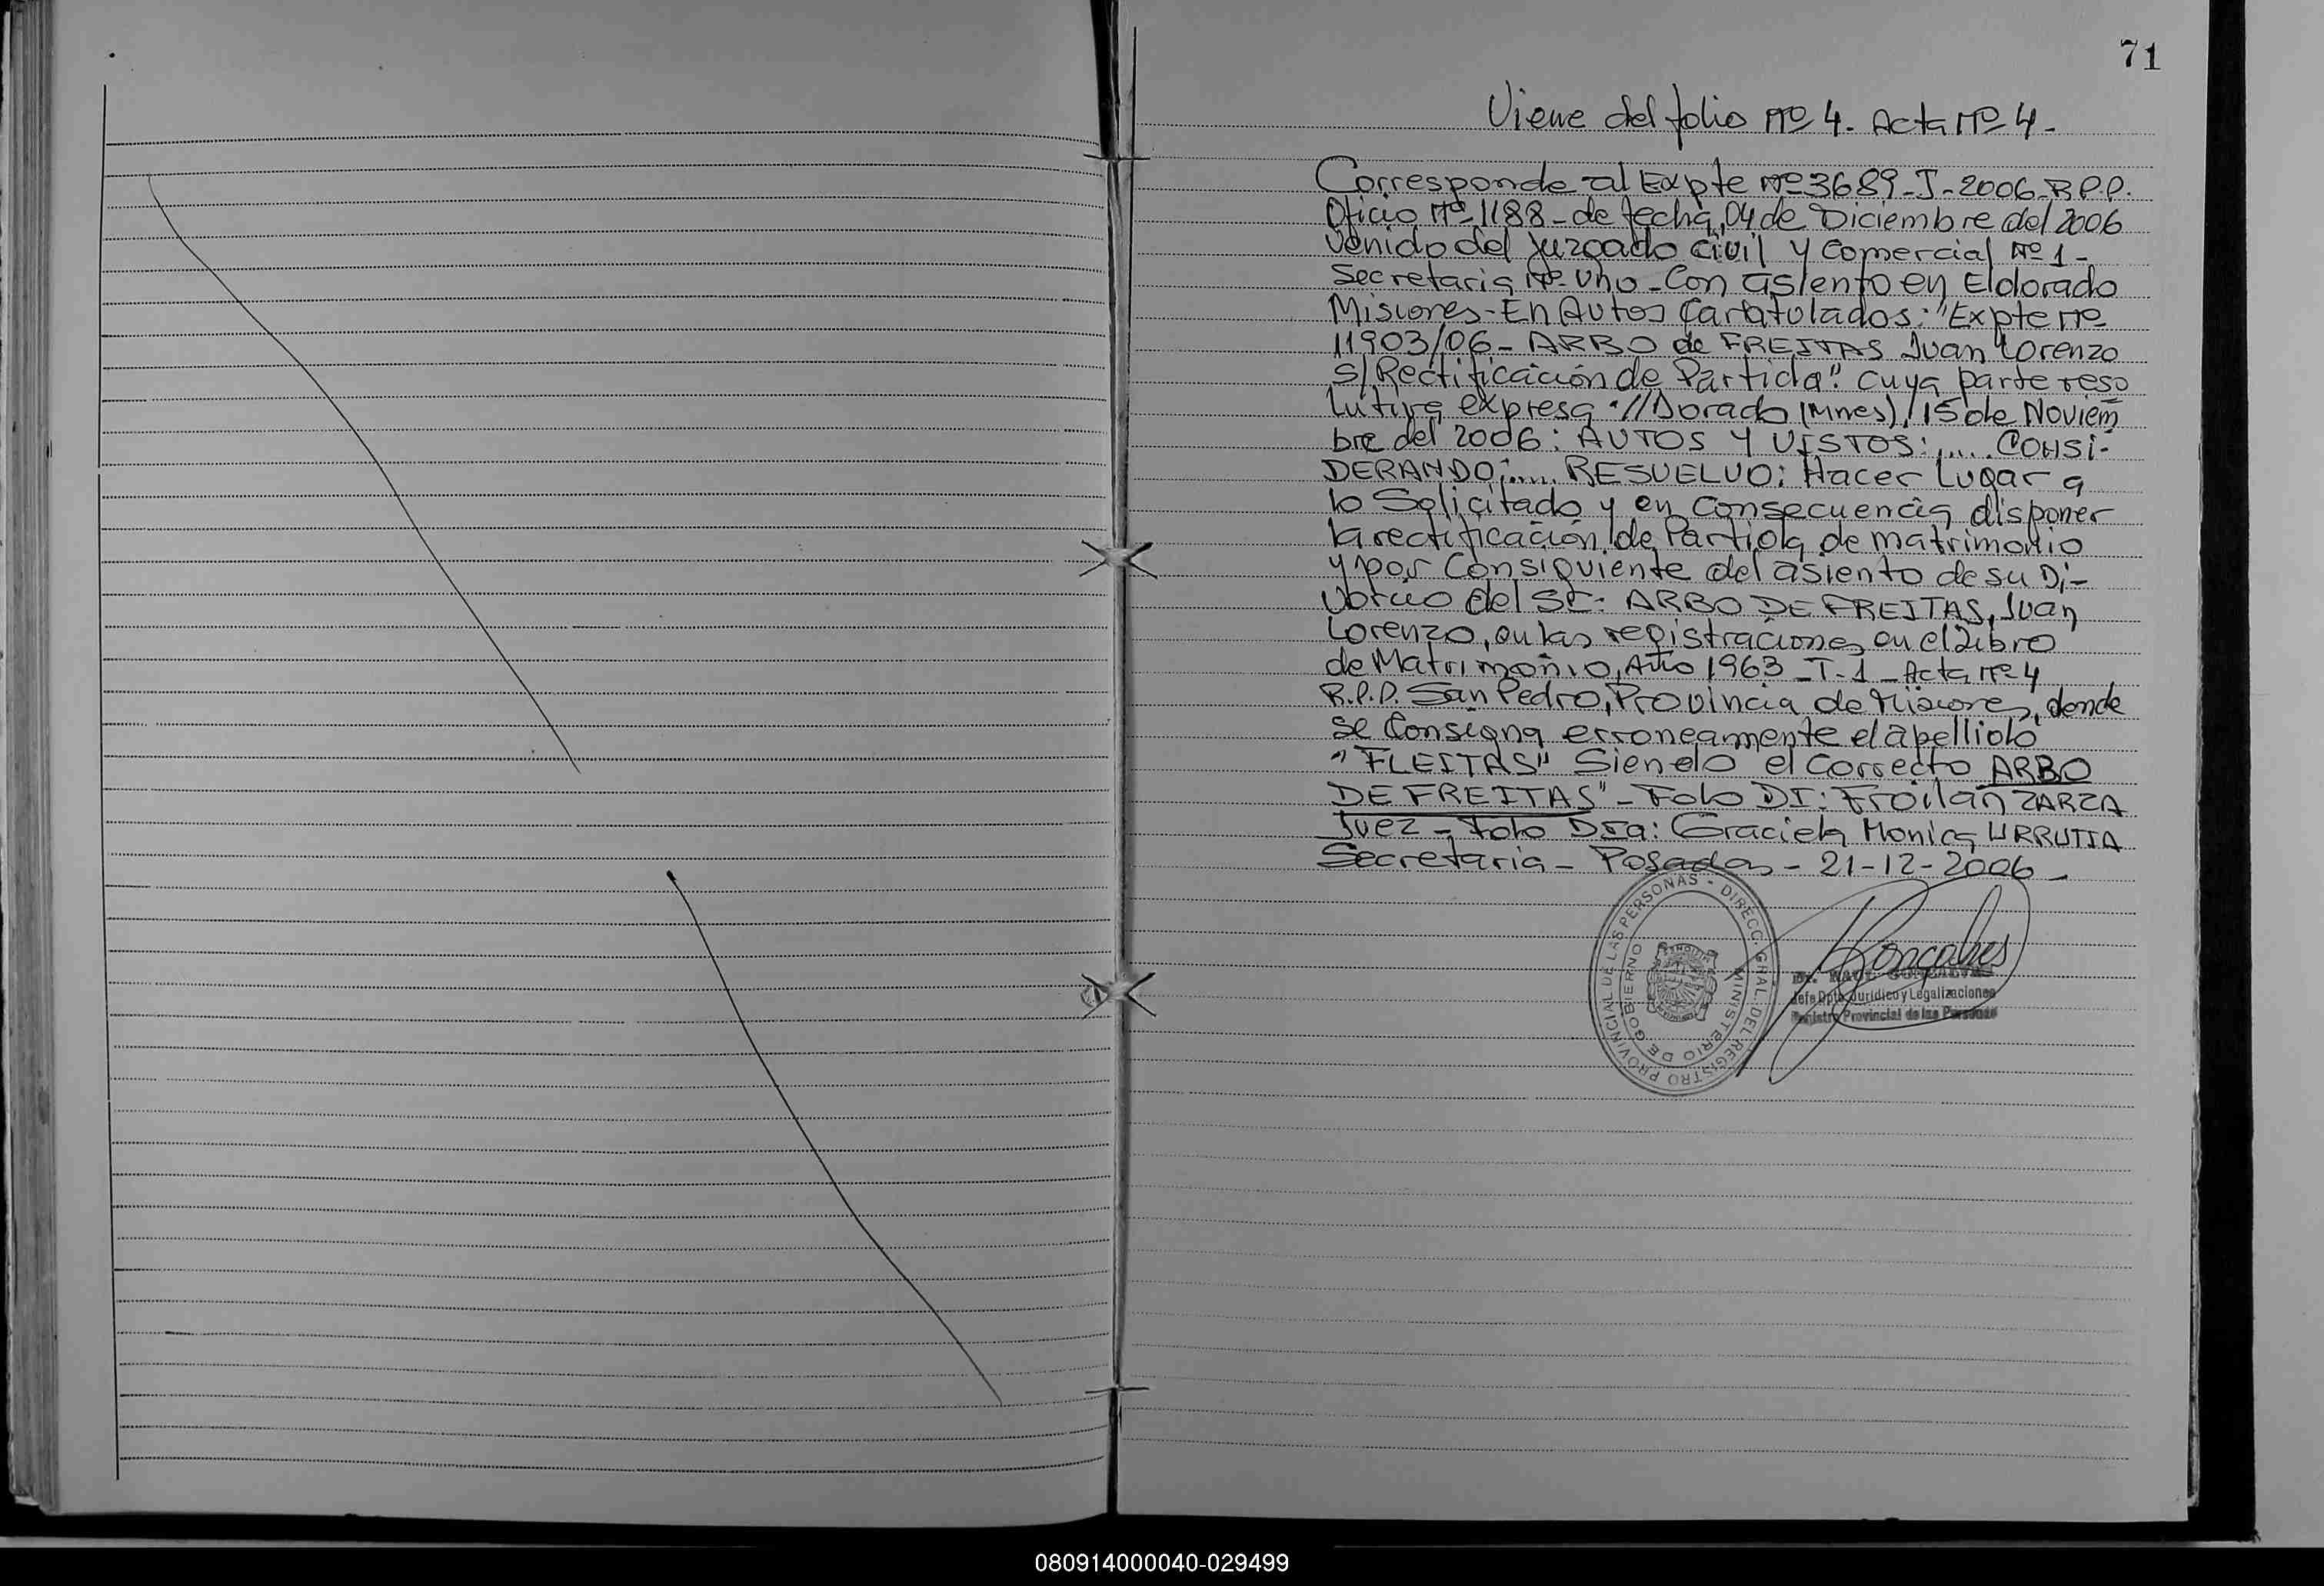 71
Viene del folio Nº 4. Acta Nº 4-
Corresponde al Expte Nº 3689-J-2006-R.P.P.
Oficio Nº 1188-de fecha, 04 de Diciembre del 2006
Venido del Juzgado Civil y Comercial Nº 1-
Secretaria Nº Uno-Con asiento en Eldorado
Misiones-En Autos Caratulados: "Expte Nº
11903/06-ARBO de FREITAS Juan Lorenzo
S/ Rectificación de Partida". Cuya parte reso
lutiva expresa "//Dorado (Mnes), 15 de Noviem
bre del 2006: AUTOS Y VISTOS:..... CONSI-
DERANDO:..... RESUELVO: Hacer Lugar a
lo Solicitado y en Consecuencia disponer
la rectificación de Partida de matrimonio
y por Consiguiente del asiento de su Di-
vorcio del Sr: ARBO DE FREITAS, Juan
Lorenzo, en las registraciones en el Libro
de Matrimonio, Año 1963-T-1-Acta Nº 4
R.P.P. San Pedro, Provincia de Misiones, donde
se Consigna erroneamente el apellido
"FLEITAS" Siendo el Correcto ARBO
DE FREITAS"-Fdo Dr: Froilán ZARZA
Juez-Fdo Dra: Graciela Monica URRUTIA
Secretaria-Posadas-21-12-2006-
DIRECC. GRAL. DEL REGISTRO PROVINCIAL DE LAS PERSONAS -
MINISTERIO DE GOBIERNO
Gonçalves
Dr. RAUL GONCALVES
Jefe Dpto. Jurídico y Legalizaciones
Registro Provincial de las Personas
080914000040-029499